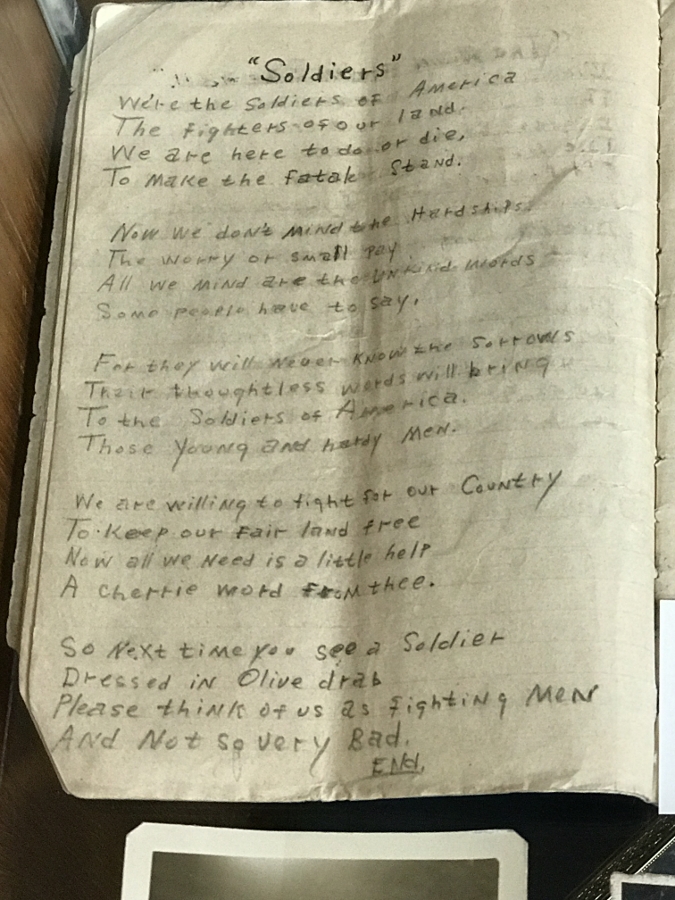 "Soldiers"
We're the Soldiers of America
The Fighters of our land.
We are here to do or die,
To make the fatak Stand.
Now we don't mind the Hardships.
The worry or small pay
All we mind are the unkind words
Some people have to say.
For they will never know the sorrows
Their thoughtless words will bring
To the Soldiers of America.
Those young and hardy men.
We are willing to fight for our Country
To keep our fair land free
Now all we need is a little help
A cherrie word from thee.
So next time you see a Soldier
Dressed in Olive drab
Please think of us as fighting men
And Not so very Bad.
End.